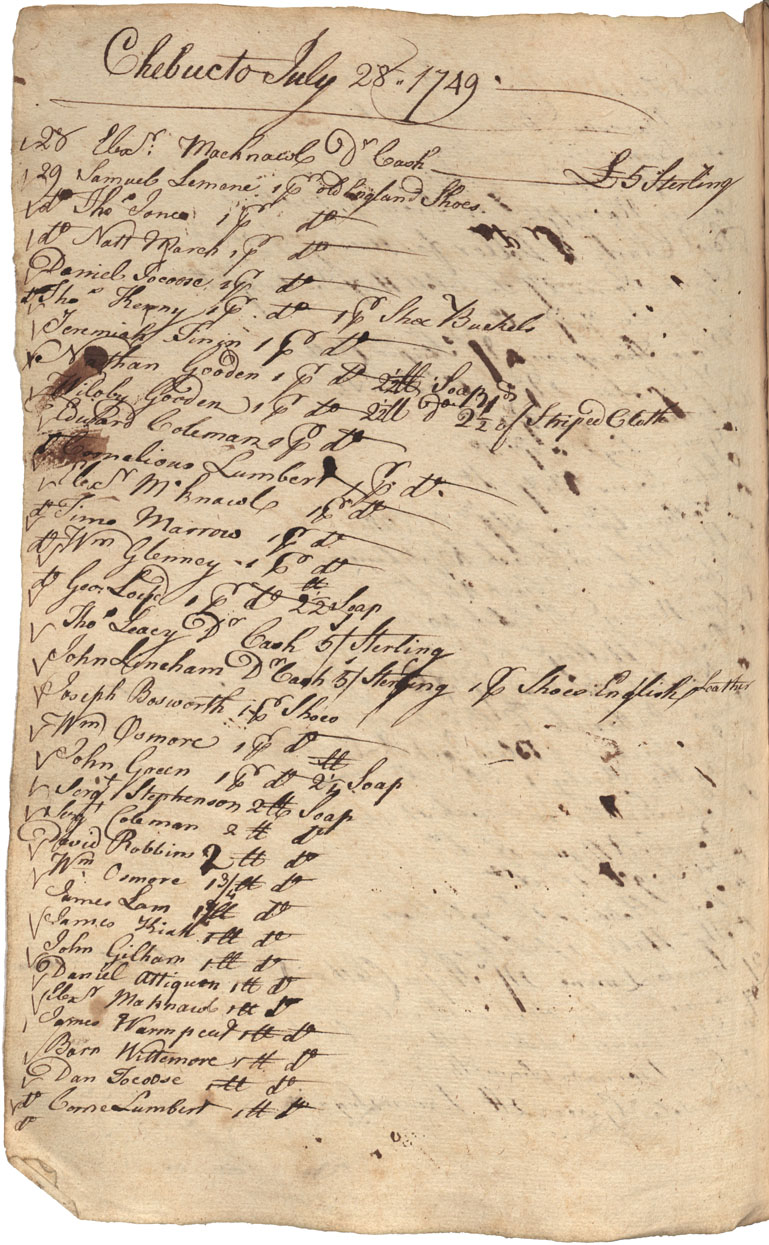 Chebucto July 28.. 1749
28 Elexr. Macknawl Dr Cash £5 Sterling
29 Samuel Lemene 1 Pr old England Shoes
do Thos Jones 1 Pr do
do Natt March 1 Pr do
Daniel Tocoose 1 Pr do
do Thos Kenny 1 Pr. do 1 Pr Shoe Buckels
Jeremiah 1 Pr do
Nathan Gooden 1 Pr do Soap
Wiloby Gooden 1 Pr do do 2 1/2 of Striped Cloth
Edward Coleman 1 Pr do
do Cornelious Lumbert 1 Pr. do
Elexr Mcknawl 1 Pr do
do Timo Marrow 1 Pr do
do Wm Glenney 1 Pr do
do Geo. 1 Pr do 2 1/2 tt Soap
Thos Leacy Dr Cash 5/ Sterling
John Lineham Dr Cash 5/ Sterling 1 Pr Shoes English Leather
Joseph Bosworth 1 Pr Shoes
Wm Osmore 1 Pr do
John Green 1 Pr do 2 1/4 tt Soap
Sergt Stephenson 2 tt Soap
Sergt Coleman 2 tt do
David Robbins 2 tt do
Wm Osmore 1 3/4 tt do
James Lam tt do
James 1 tt do
John Gilham 1 tt do
Daniel Attiquon 1 tt do
Elexr Maknawl 1 tt do
James Warmpeut 1 tt do
Barn Wittemore 1 tt do
Dan Tocoose 1 tt do
do Corne Lumbert 1 tt do
do